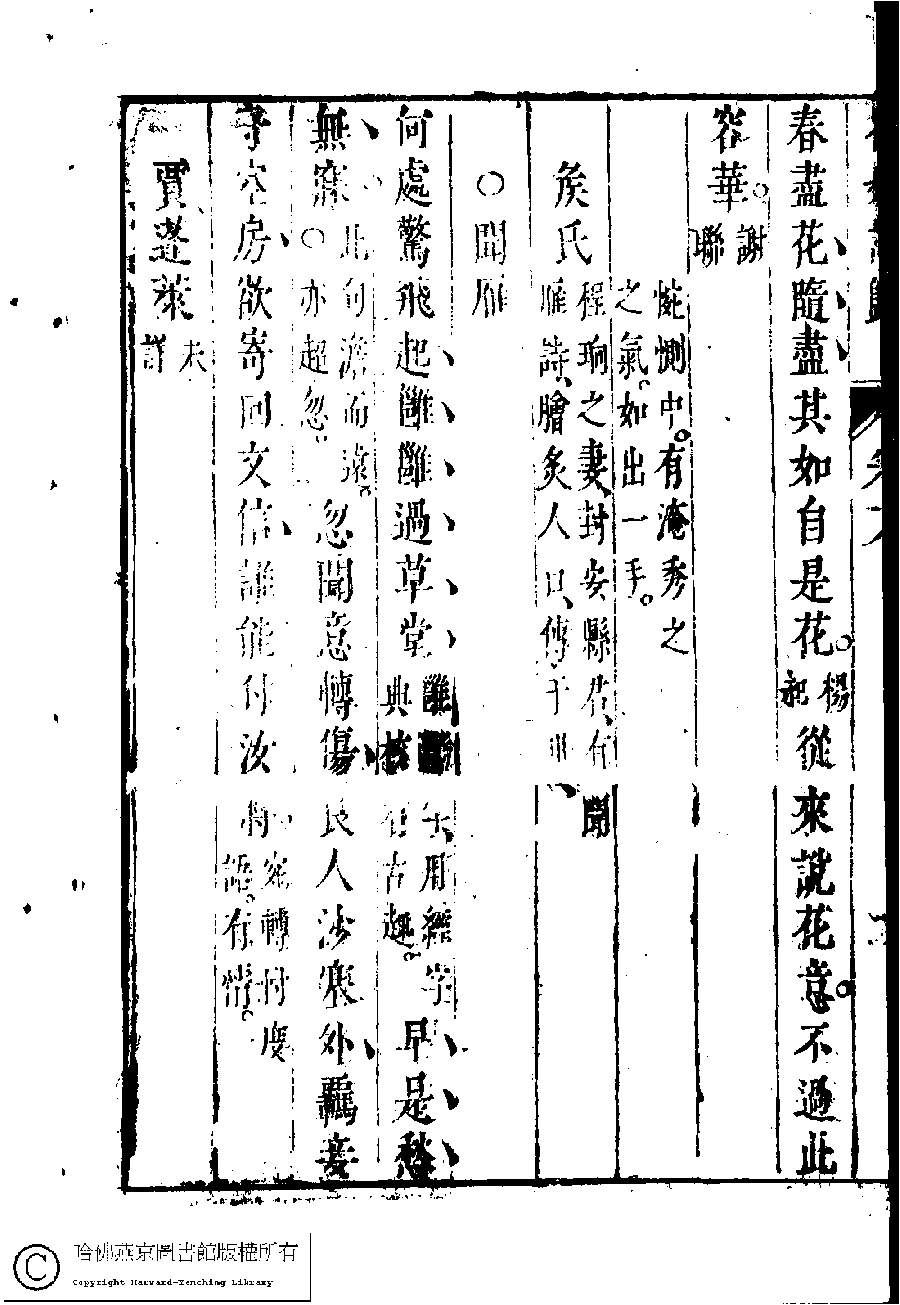 春盡花隨盡其如自是花楊妃從來說花意不過此
容華謝聯
惋惻中有淹秀之
之氣如出一手
矦氏程珦之妻封安縣君有聞
雁詩膾炙人口傳于世
○聞雁
何處驚飛起雝雝過草堂雝雝字用經字典核有古趣早是愁
無寐此句澹而遠○亦超忽忽聞意轉傷良人沙塞外羈妾
守空房欲寄回文信誰能付汝將宛轉忖度語有情
賈蓬萊未詳
哈佛燕京圖書館版權所有
Copyright Harvard-Yenching Library